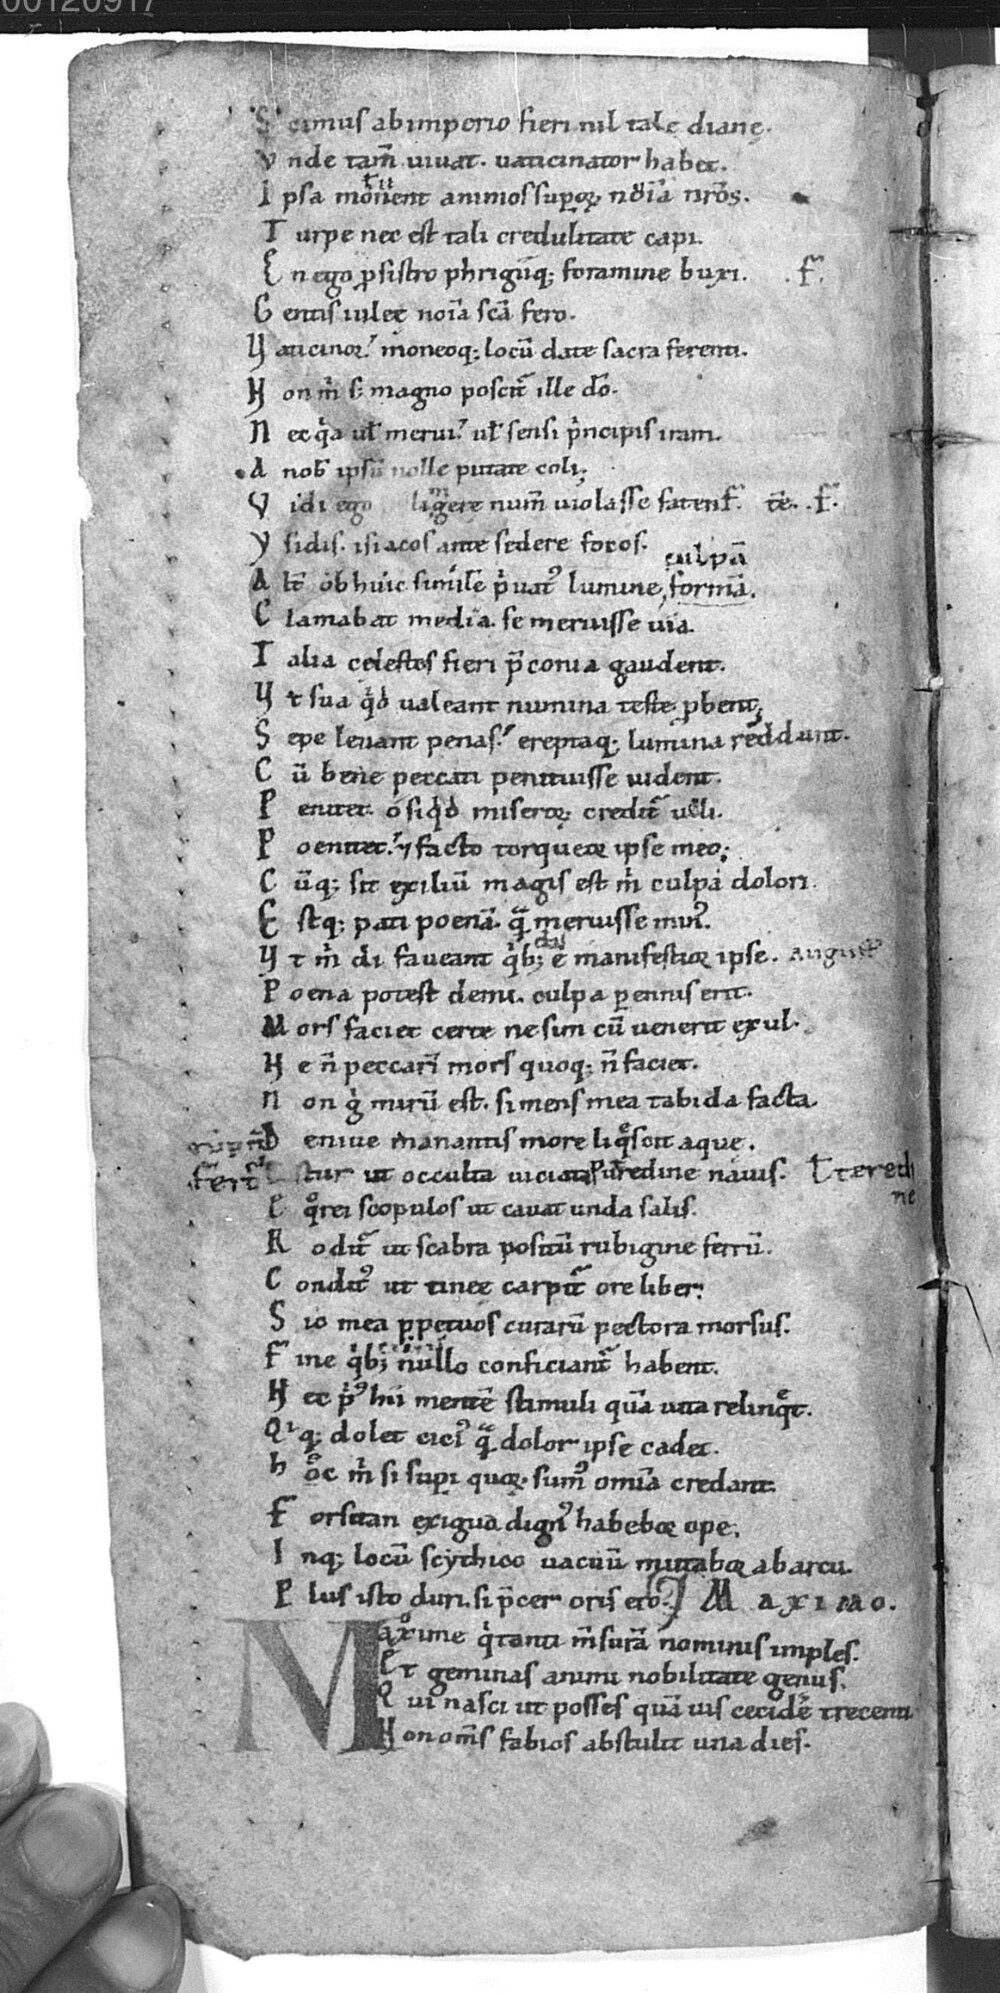 00120917
S cimus ab imperio fieri nil tale diane.
V nde tam̄ uiuat. uaticinator habet.
I psa mouent animos superoꝝ noīa nr̄os.
T urpe nec est tali credulitate capi.
E n ego p sistro phrigiiq; foramine buxi. .f̄.
G entis iulee noīa sc̄a fero.
V aticinor. moneoq; locū date sacra ferenti.
N on m̄ s; magno poscit̄ ille do.
N ec q̇a ul̄ merui. ul̄ sensi pͥncipis iram.
A nob ipsū nolle putate coli;
V idi ego ligere num̄ uiolasse faten
Y sidis. isiacos ante sedere focos.
culpā
A lt̄ ob huic simile pͥuatꝰ lumine, formā.
C lamabat media. se meruisse uia.
T alia celestes fieri p̄conia gaudent.
V t sua qͥd ualeant numina teste ꝓbent;
S epe leuant penas. ereptaq; lumina reddunt.
C ū bene peccati penituisse uident.
P enitet. o siqͥd miseroꝝ credit̄ ulli.
P oenitet. ⁊ facto torqueor ipse meo;
C ūq; sit exiliū magis est m̄ culpa dolori.
E stq; pati poenā. q̄ meruisse minꝰ.
V t m̄ di faueant qͥb; e manifestior ipse. august
P oena potest demi. culpa perennis erit.
M ors faciet certe ne sim cū uenerit exul.
N e n̄ peccarī mors quoq; n̄ faciet.
N on gͥ mirū est. si mens mea tabida facta.
D eniue manantis more liqͦscit aque.
E stur ut occulta uiciata puredine nauis. ł teredi
ne
E qͦrei scopulos ut cauat unda salis.
R odit̄ ut scabra positū rubigine ferrū.
C onditꝰ ut tinee carpit̄ ore liber;
S ic mea ꝑpetuos curarū pectora morsus.
F ine qͥb; nullo conficiant̄ habent.
N ec pͥꝰ hii mentē stimuli quā uita relinqͦt.
Q iq; dolet ciciꝰ q̄ dolor ipse cadet.
h oͦc m̄ si supi quoꝝ sumꝰ omīa credant.
F orsitan exigua dignꝰ habebor ope;
I nq; locū scythico uacuū mutabor ab arcu.
P lus isto duri. si p̄cer oris ero. Maximo.
Maxime qͥ tanti m̄surā nominis imples.
Et geminas animi nobilitate genus.
Qui nasci ut posses quāuis cecider̄ trecenti
Non om̄s fabios abstulit una dies.